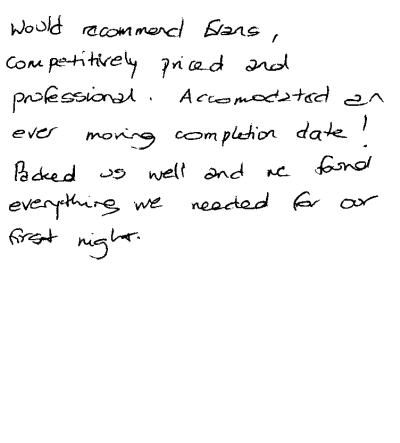 Would recommend Evans,
competitively priced and
professional. Accomodated an
ever moving completion date!
Packed us well and we found
everything we needed for our
first night.